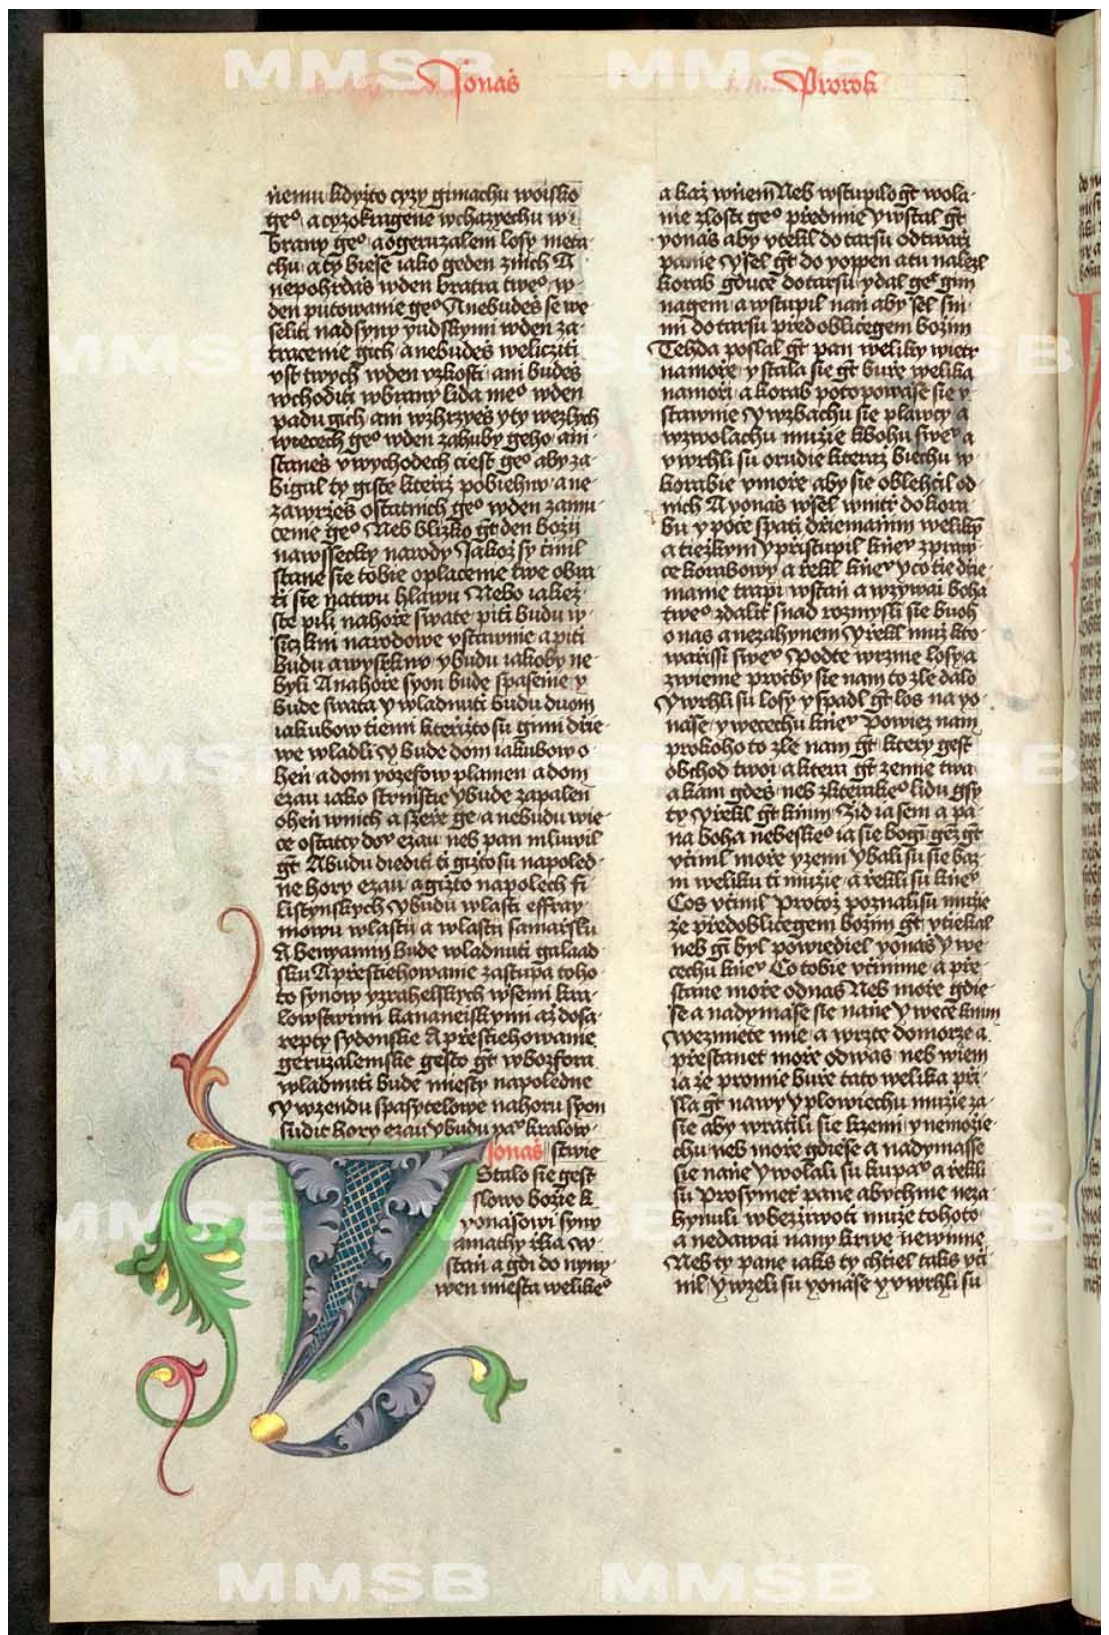 Jonáš Prorok
ňemu kdyžto cyzy gimachu woisko
geº a cyzokragene wchazyechu w
brany geº a ogeruzalem losy meta
chu a ty bieše iako geden znich A
nepohrdáš wden bratra tweº w
den putowanie geº A nebudeš se we
seliti nad syny yudskymi wden za
tracenie gich a nebudeš welicziti
vst twych wden vzkosti ani budeš
wchoditi wbrany lida meº wden
padu gich ani wzhrzyeš y ty wezlych
wiecech geº wden zahuby geho ani
staneš v wychodech ciest geº aby za
bigal ty giste kteříž pobiehnu a ne
zawrzeš ostatnich geº wden zamu
cenie geº Neb blizko gt den božij
nawssecky narody Jakož sy činil
stane sie tobie oplacenie twe obra
ti sie natwu hlawu Nebo iakež
ste pili nahoře swate piti budu w
siczkni narodowe vstawnie a piti
budu a wysrknu y budu iakoby ne
byli A nahoře syon bude spasenie y
bude swata y wladnuti budu duom
iakubow tiemi kterižto su gimi dřie
we wladli Y bude dom iakubow o
heň a dom yozefow plamen a dom
ezau iako strnistie Y bude zapalen
oheň wnich a sžeře ge a nebudu wie
ce ostatcy doº ezau neb pan mluwil
gt A budu diediti ti gižto su napoled
ne hory ezau a gižto napolech fi
listynskych Y budu wlasti effray
mowu wlasti a wlasti samařsku
A benyamin bude wladnuti galaad
sku A přestiehowanie zastupa toho
to synow yzrahelskych wsemi kra
lowstwimi kananeiskymi až dosa
repty sydonske A přestiehowanie
geruzalemske gesto gt wbozfora
wladnuti bude miesty napoledne
Y wzendu spasytelowe nahoru syon
sudit hory ezau Y budu paº kralow
Jonáš stwie
Stalo sie gest
slowo božie k
yonašowi synu
amathy řka W
staň a gdi do nyny
wen miesta welikeº
a kaž wňem Neb wstupilo gt wola
nie zlosti geº předmie Y wstal gt
yonáš aby vtekl do tarsu odtwaři
panie Y šel gt do yoppen a tu nalezl
korab gduce dotarsu y dal geº gim
nagem a wstupil naň aby šel sni
mi dotarsu před obličegem božim
Tehda poslal gt pan weliky wietr
namoře y stala sie gt buře welika
namoři a korab potopowaše sie y
stawnie Y wzbachu sie plawcy a
wzwolachu mužie kbohu sweº a
vwrhli su orudie kteraž biechu w
korabie vmoře aby sie oblehčil od
nich A yonáš wšel wnitř do kora
bu y poče spati dřiemanim welikym
a tiežkym Y přistupil kňeº zpraw
ce korabowy a řekl kňeº y co tie dřie
manie trapi wstaň a wzywai boha
tweº zdaliť snad rozmysli sie buoh
o nas a nezahynem Y řekl muž kto
wařissi sweº Podte wrzme losy a
zwieme pročby sie nam to zle dalo
Y wrhli su losy y spadl gt los na yo
naše y wecechu kňeº Powiez nam
prokoho to zle nam gt ktery gest
obchod twoi a ktera gt zemie twa
a kam gdeš neb zkterakeº lidu gsy
ty Y řekl gt knim Žid ia sem a pa
na boha nebeskeº ia sie bogi genž gt
včinil moře y zemi Y bali su sie baz
ni weliku ti mužie a řekli su kňeº
Cos včinil Protož poznali su mužie
že předobličegem božim gt vtiekal
neb gi byl powiediel yonáš Y we
cechu kňeº Co tobie včinime a pře
stane moře odnas Neb moře gdie
še a nadymaše sie naňe Y wece knim
Wezmiete mie a wrzte domorze a
přestanet moře odwas neb wiem
ia že promie buře tato welika při
šla gt nawy Y plowiechu mužie za
sie aby wratili sie kzemi y nemožie
chu neb moře gdieše a nadymasse
sie naňe Y wolali su kupaº a řekli
su Prosymet pane abychme neza
hynuli wbezžiwoti muže tohoto
a nedawai nany krwe newinne
Neb ty pane iaks ty chtiel taks vči
nil Y wzeli su yonáše y vwrhli su